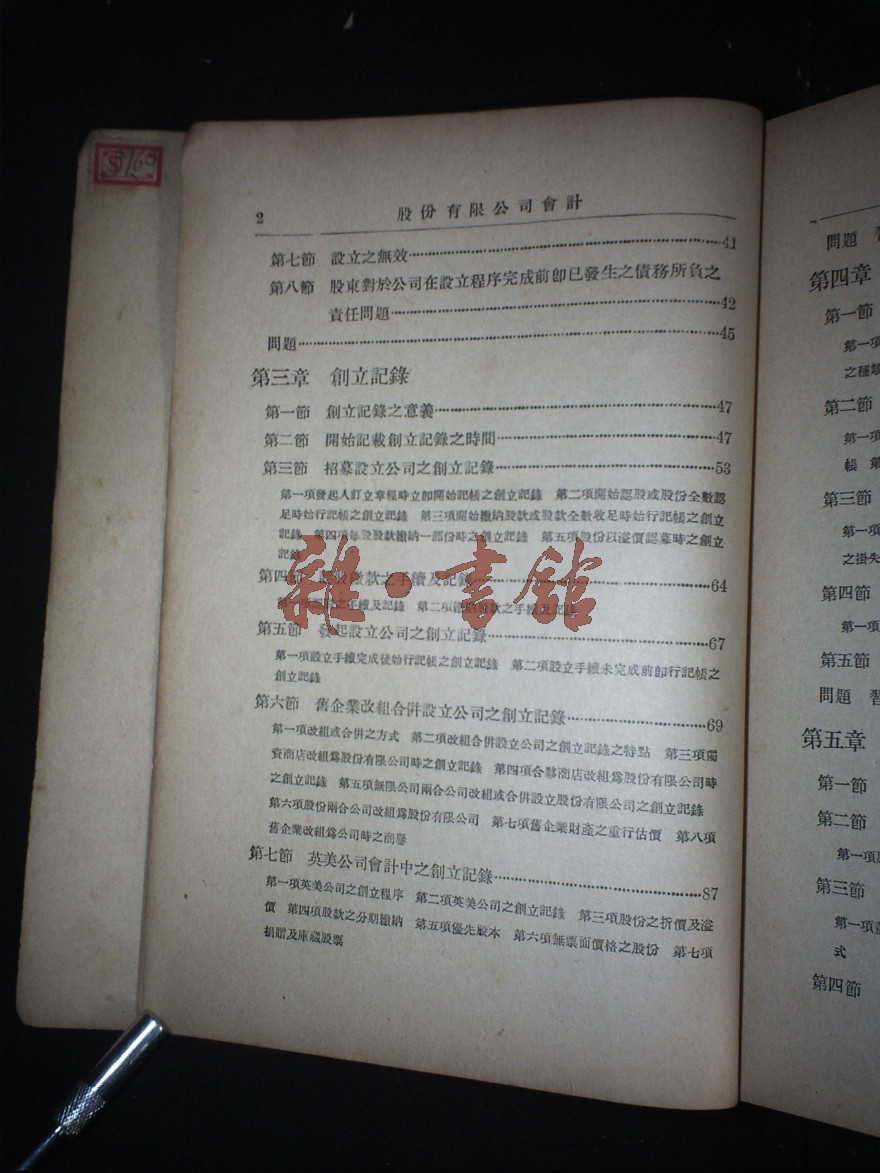 2 股份有限公司會計
第七節 設立之無效……41
第八節 股東對於公司在設立程序完成前卽已發生之債務所負之
責任問題……42
問題……45
第三章 創立記錄
第一節 創立記錄之意義……47
第二節 開始記載創立記錄之時間……47
第三節 招募設立公司之創立記錄……53
第一項發起人訂立章程時立卽開始記帳之創立記錄 第二項開始認股或股份全數認
足時始行記帳之創立記錄 第三項開始繳納股款或股款全數收足時始行記帳之創立
記錄 第四項每股股款繳納一部份時之創立記錄 第五項股份以溢價認募時之創立
記錄
第四節 款之手續及記錄……64
第一項 之手續及記錄 第二項 股款之手續及記錄
第五節 發起設立公司之創立記錄……67
第一項設立手續完成後始行記帳之創立記錄 第二項設立手續未完成前卽行記帳之
創立記錄
第六節 舊企業改組合併設立公司之創立記錄……69
第一項改組或合併之方式 第二項改組合併設立公司之創立記錄之特點 第三項獨
資商店改組爲股份有限公司時之創立記錄 第四項合夥商店改組爲股份有限公司時
之創立記錄 第五項無限公司兩合公司改組或合併設立股份有限公司之創立記錄
第六項股份兩合公司改組爲股份有限公司 第七項舊企業財產之重行估價 第八項
舊企業改組爲公司時之商譽
第七節 英美公司會計中之創立記錄……87
第一項英美公司之創立程序 第二項英美公司之創立記錄 第三項股份之折價及溢
價 第四項股款之分期繳納 第五項優先股本 第六項無票面價格之股份 第七項
捐贈及庫藏股票
問題 習
第四章
第一節
第一項
之種類
第二節
第一項
帳 第
第三節
第一項
之掛失
第四節
第一項
第五節
問題 習
第五章
第一節
第二節
第一項
第三節
第一項
式
第四節
雜·書館